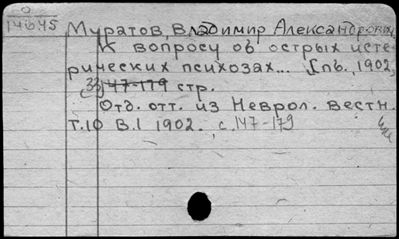 О
14645
Муратов, Владимир Александрович
К вопросу об острых исте-
рических психозах... Спб., 1902,
(33) 147-179 стр.
Отд. отт. из Неврол. Вестн.
т.10 в.1 1902. с.147-179